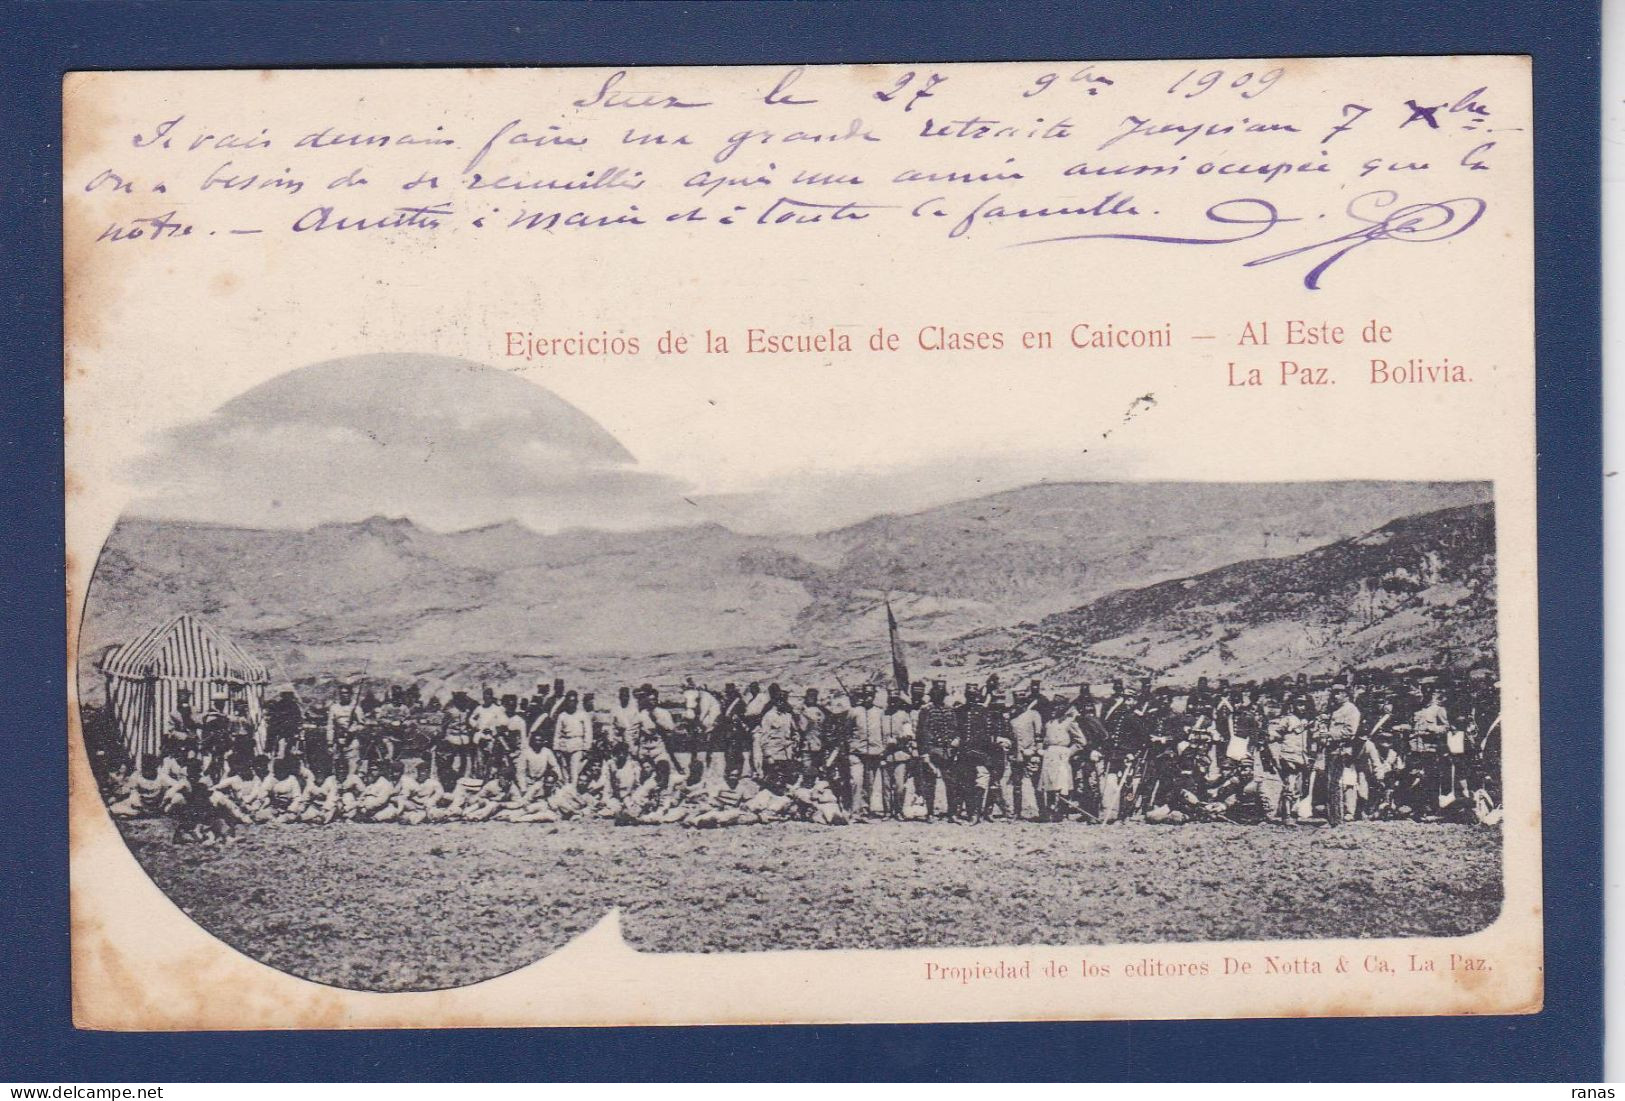 le 27 9bre 1909
Je vais demain faire ma grande retraite jusqu'au 7 Xbre
on a besoin de se recueillir après une année aussi occupée que la
nôtre. — Amitiés à Marie et à toute la famille.
Ejercicios de la Escuela de Clases en Caiconi — Al Este de
La Paz. Bolivia.
Propiedad de los editores De Notta & Ca, La Paz.
ranas